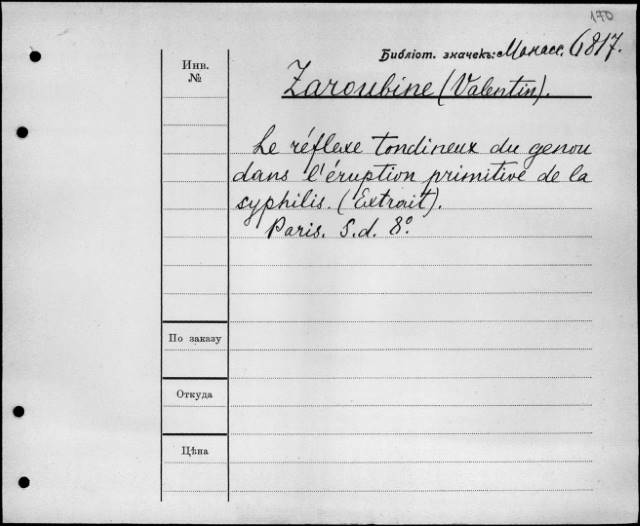 170
Библіот. значекъ: Манасс. 6817.
Инв.
№
Zaroubine (Valentin).
Le réflexe tondineux du genou
dans l'éruption primitive de la
syphilis. (Extrait).
Paris. S.d. 8°.
По заказу
Откуда
Цѣна